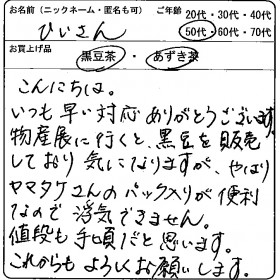 お名前（ニックネーム・匿名も可） ご年齢 20代・30代・40代
ひいさん 50代・60代・70代
お買上げ品 黒豆茶・あずき茶
こんにちは。
いつも早い対応ありがとうございます
物産展に行くと、黒豆を販売
しており気になりますが、やはり
ヤマタケさんのパック入りが便利
なので浮気できません。
値段も手頃だと思います。
これからもよろしくお願いします。